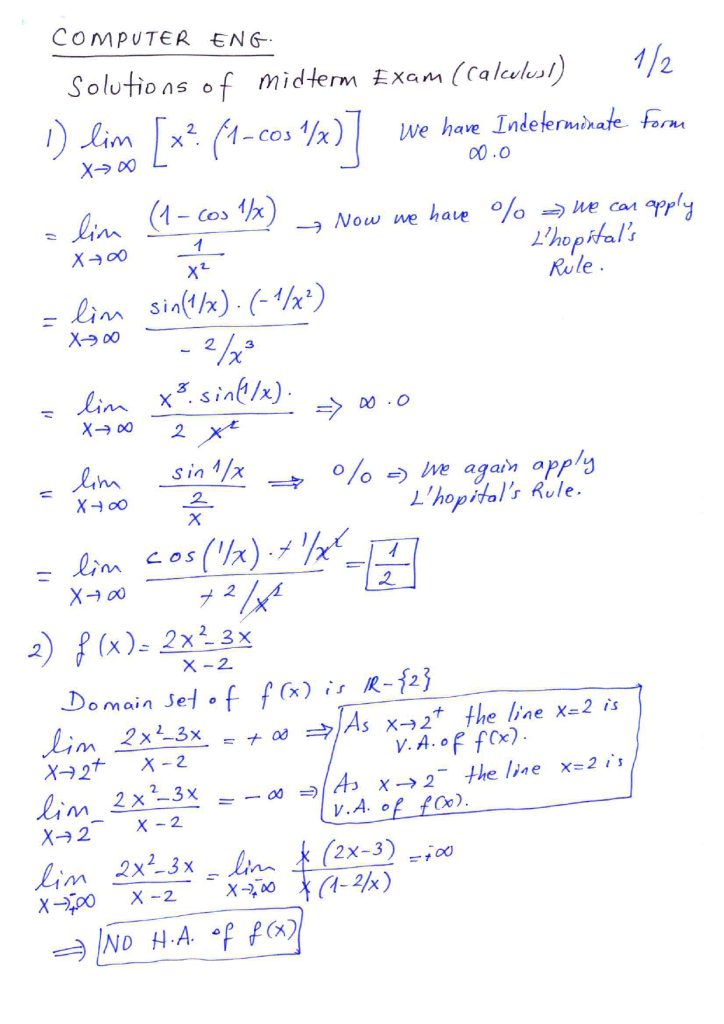 COMPUTER ENG.
Solutions of midterm Exam (Calculus1) 1/2
1) lim x→∞ [x². (1-cos 1/x)] We have Indeterminate form ∞.0
= lim x→∞ (1-cos 1/x) / (1/x²) → Now we have 0/0 ⇒ we can apply
L'hopital's
Rule.
= lim x→∞ sin(1/x).(-1/x²) / (-2/x³)
= lim x→∞ x³.sin(1/x). / 2x² ⇒ ∞.0
= lim x→∞ sin 1/x / (2/x) ⇒ 0/0 ⇒ We again apply
L'hopital's Rule.
= lim x→∞ cos(1/x).+1/x² / (+2/x²) = 1/2
2) f(x)= (2x²-3x)/(x-2)
Domain set of f(x) is ℝ-{2}
lim x→2⁺ (2x²-3x)/(x-2) = +∞ ⇒ As x→2⁺ the line x=2 is
V.A. of f(x).
lim x→2⁻ (2x²-3x)/(x-2) = -∞ ⇒ As x→2⁻ the line x=2 is
V.A. of f(x).
lim x→∓∞ (2x²-3x)/(x-2) = lim x→∓∞ x(2x-3) / x(1-2/x) = ∓∞
⇒ NO H.A. of f(x)